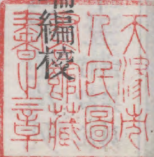 編校
天津市
人民圖
書館藏
書之章